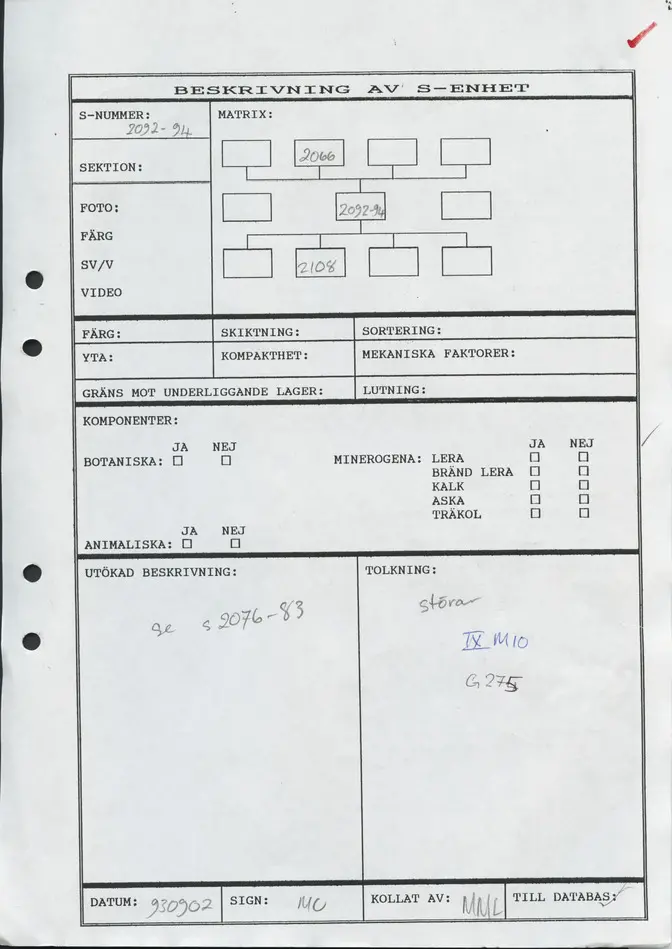 BESKRIVNING AV S-ENHET
S-NUMMER:
2092-94
MATRIX:
2066
SEKTION:
FOTO:
2092-94
FÄRG
SV/V
2108
VIDEO
FÄRG:
SKIKTNING:
SORTERING:
YTA:
KOMPAKTHET:
MEKANISKA FAKTORER:
GRÄNS MOT UNDERLIGGANDE LAGER:
LUTNING:
KOMPONENTER:
JA NEJ
BOTANISKA:
JA NEJ
MINEROGENA: LERA
BRÄND LERA
KALK
ASKA
TRÄKOL
JA NEJ
ANIMALISKA:
UTÖKAD BESKRIVNING:
se s 2076-83
TOLKNING:
störar
IX M10
G 275
DATUM: 930902
SIGN: MC
KOLLAT AV: MML
TILL DATABAS: